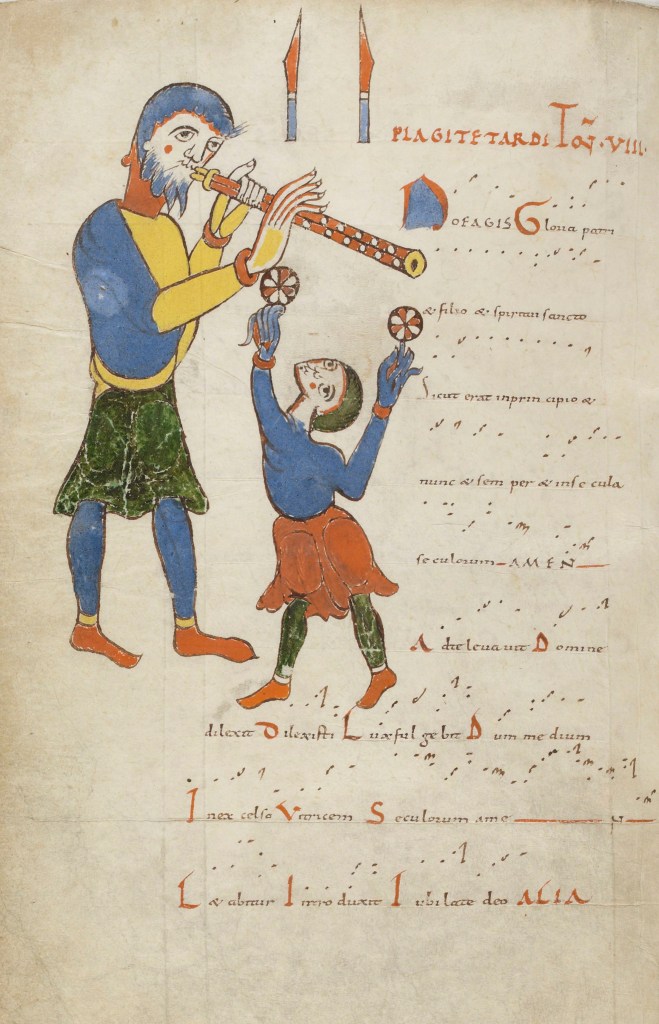 PLAGI TETARDI TOÑ. VIII.
NOEAGIS Gloria patri
& filio & spiritui sancto
Sicut erat inprincipio &
nunc & sem per & inse cula
seculorum AMEN
Ad te leuauit Domine
dilexit Dilexisti Lux ful ge bit Dum me dium
In ex celso Victricem Seculorum ame N
L& abitur Intro duxit Iubilate deo ALIA